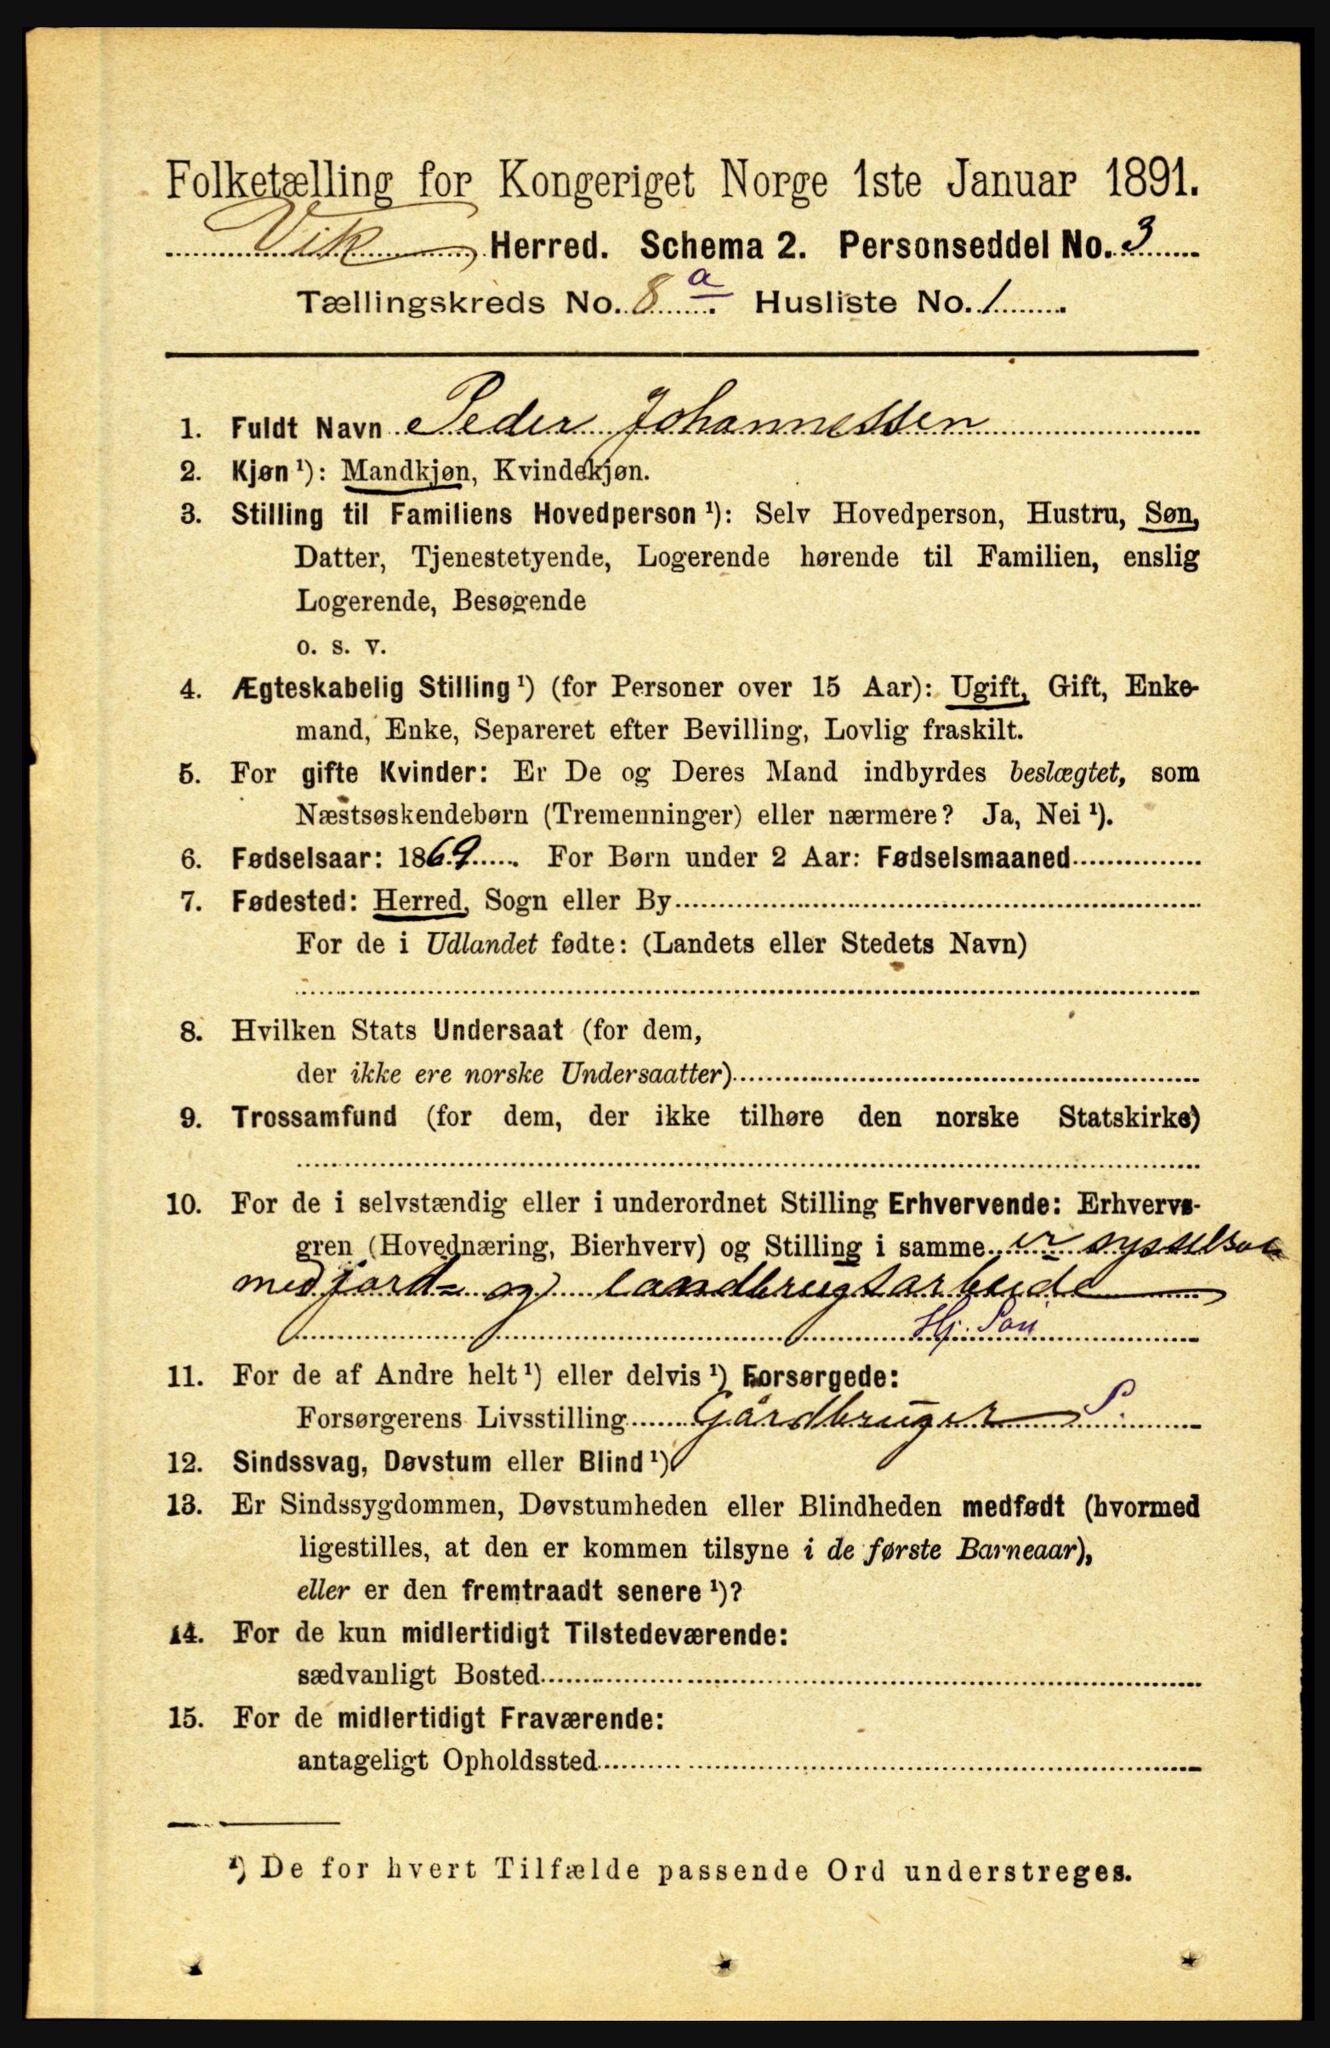 Folketælling for Kongeriget Norge 1ste Januar 1891.
Vik Herred. Schema 2. Personseddel No. 3
Tællingskreds No. 8 a. Husliste No. 1.
1. Fuldt Navn Peder Johannessen
2. Kjøn ¹): Mandkjøn, Kvindekjøn.
3. Stilling til Familiens Hovedperson ¹): Selv Hovedperson, Hustru, Søn,
Datter, Tjenestetyende, Logerende hørende til Familien, enslig
Logerende, Besøgende
o. s. v.
4. Ægteskabelig Stilling ¹) (for Personer over 15 Aar): Ugift, Gift, Enke-
mand, Enke, Separeret efter Bevilling, Lovlig fraskilt.
5. For gifte Kvinder: Er De og Deres Mand indbyrdes beslægtet, som
Næstsøskendebørn (Tremenninger) eller nærmere? Ja, Nei ¹).
6. Fødselsaar: 1869. For Børn under 2 Aar: Fødselsmaaned
7. Fødested: Herred, Sogn eller By
For de i Udlandet fødte: (Landets eller Stedets Navn)
8. Hvilken Stats Undersaat (for dem,
der ikke ere norske Undersaatter)
9. Trossamfund (for dem, der ikke tilhøre den norske Statskirke)
10. For de i selvstændig eller i underordnet Stilling Erhvervende: Erhvervs-
gren (Hovednæring, Bierhverv) og Stilling i samme er sysselsat
med jord- og landbrugsarbeide
Hj. Søn
11. For de af Andre helt ¹) eller delvis ¹) Forsørgede:
Forsørgerens Livsstilling Gårdbruger S.
12. Sindssvag, Døvstum eller Blind ¹)
13. Er Sindssygdommen, Døvstumheden eller Blindheden medfødt (hvormed
ligestilles, at den er kommen tilsyne i de første Barneaar),
eller er den fremtraadt senere ¹)?
14. For de kun midlertidigt Tilstedeværende:
sædvanligt Bosted
15. For de midlertidigt Fraværende:
antageligt Opholdssted
¹) De for hvert Tilfælde passende Ord understreges.